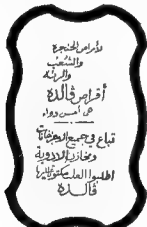 لأمراض الحنجرة
والشعب
والرئة
أقراص ڤالده
هي أحسن دواء
تباع في جميع الاجزاخانات
ومخازن الادوية
اطلبوا العلب مكتوب عليها
ڤالده